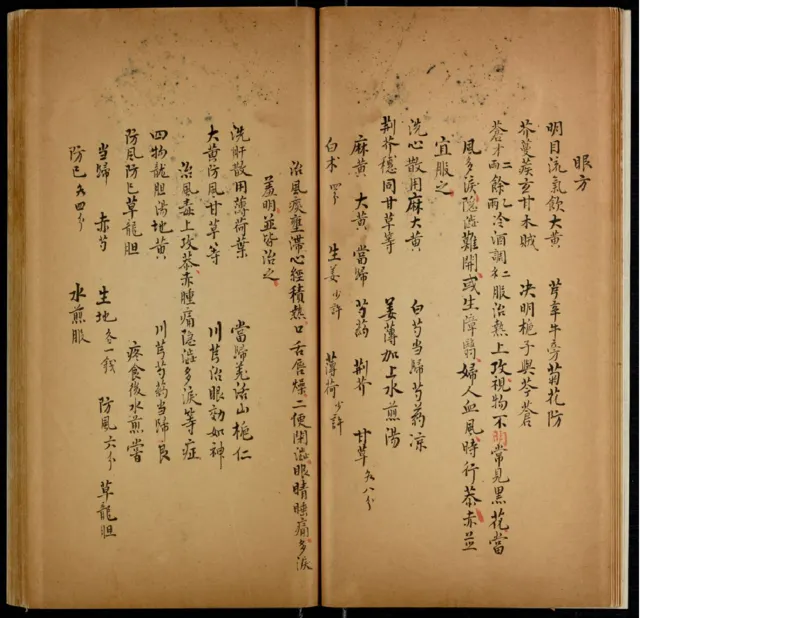 眼方
明目流氣飲大黄　芎辛牛旁菊花防
芥蔓蒺玄甘木賊　决明梔子與芩蒼
蒼才兩二餘兩乙冷酒調仁服治熱上攻視物不明常見黑花當
風多淚隐澁難開或生障翳婦人血風時行恭赤並
宜服之
洗心散用麻大黄　白芍當歸芍藥凉
荆芥穗同甘草等　姜薄加上水煎湯
麻黄　大黄　當歸　芍藥　荆芥　甘草各八分
白术四分　生姜少許　薄荷少許
治風痰壅滯心經積熱口舌唇燥二便閉澁眼睛腫痛多淚
羞明並皆治之
洗肝散用薄荷葉　當歸羌活山梔仁
大黄防風甘草等　川芎治眼効如神
治風毒上攻恭赤腫痛隐澁多淚等症
四物龍胆湯地黄　川芎芍藥當歸良
防風防巳草龍胆　疼食後水煎嘗
當歸　赤芍　生地各一錢　防風六分　草龍胆
防巳各四分　水煎服